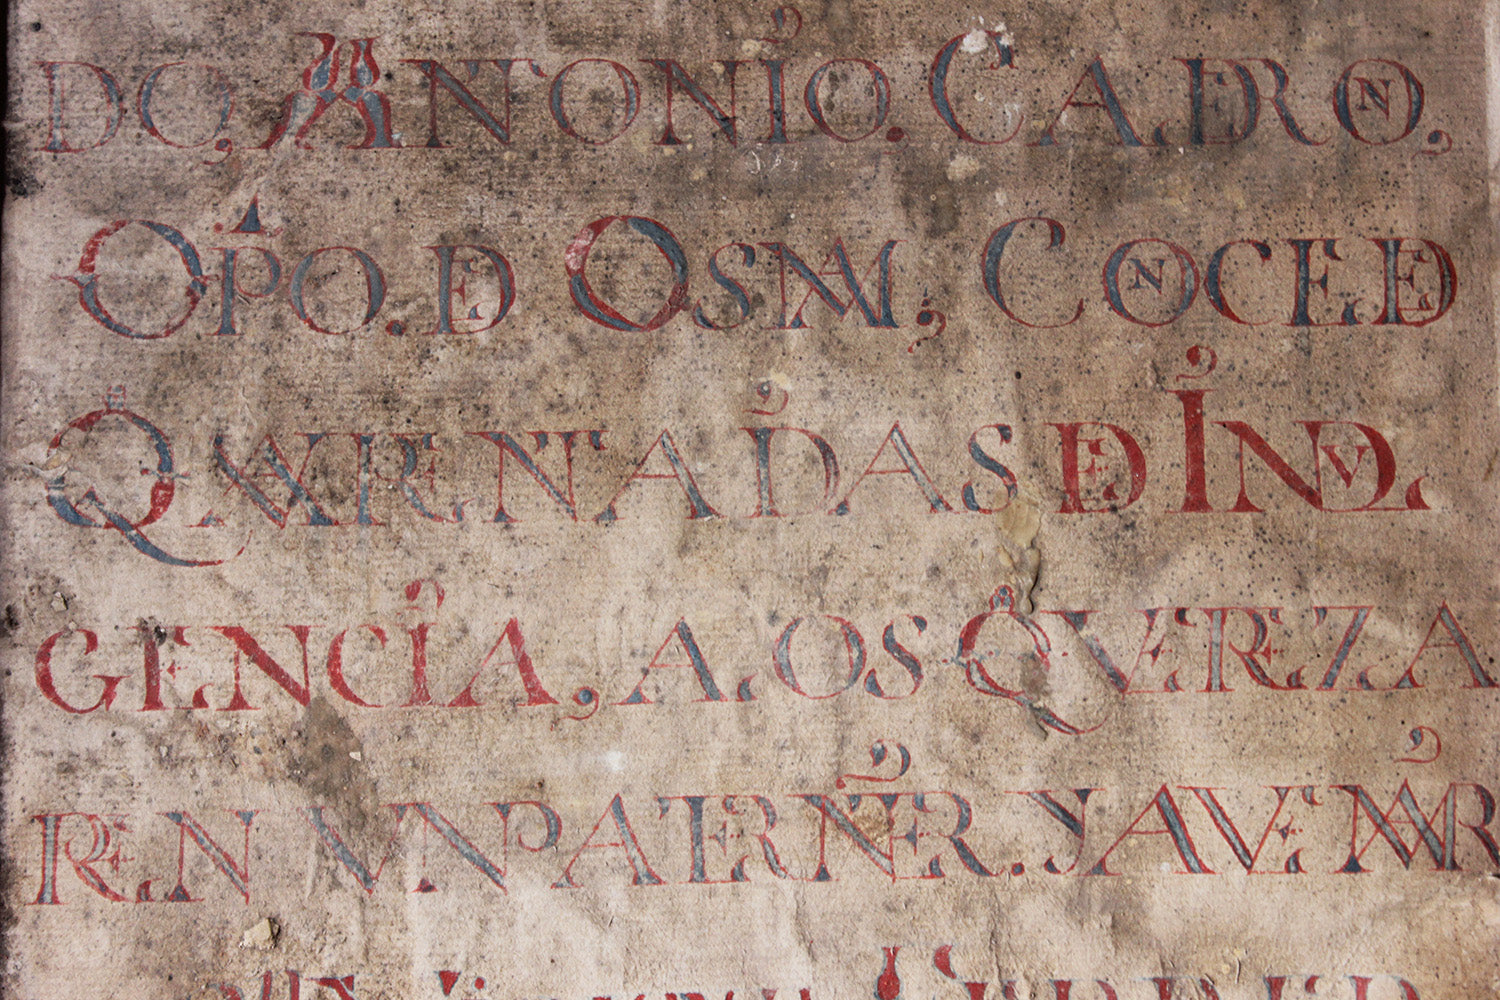 DO, ANTONIO. CALDERON,
OPO. DE OSMA; CONCEDE
QUARENTA DIAS DE INDUL
GENCIA, A LOS QUE REZA
REN UN PATER NTER. Y AVE MAR